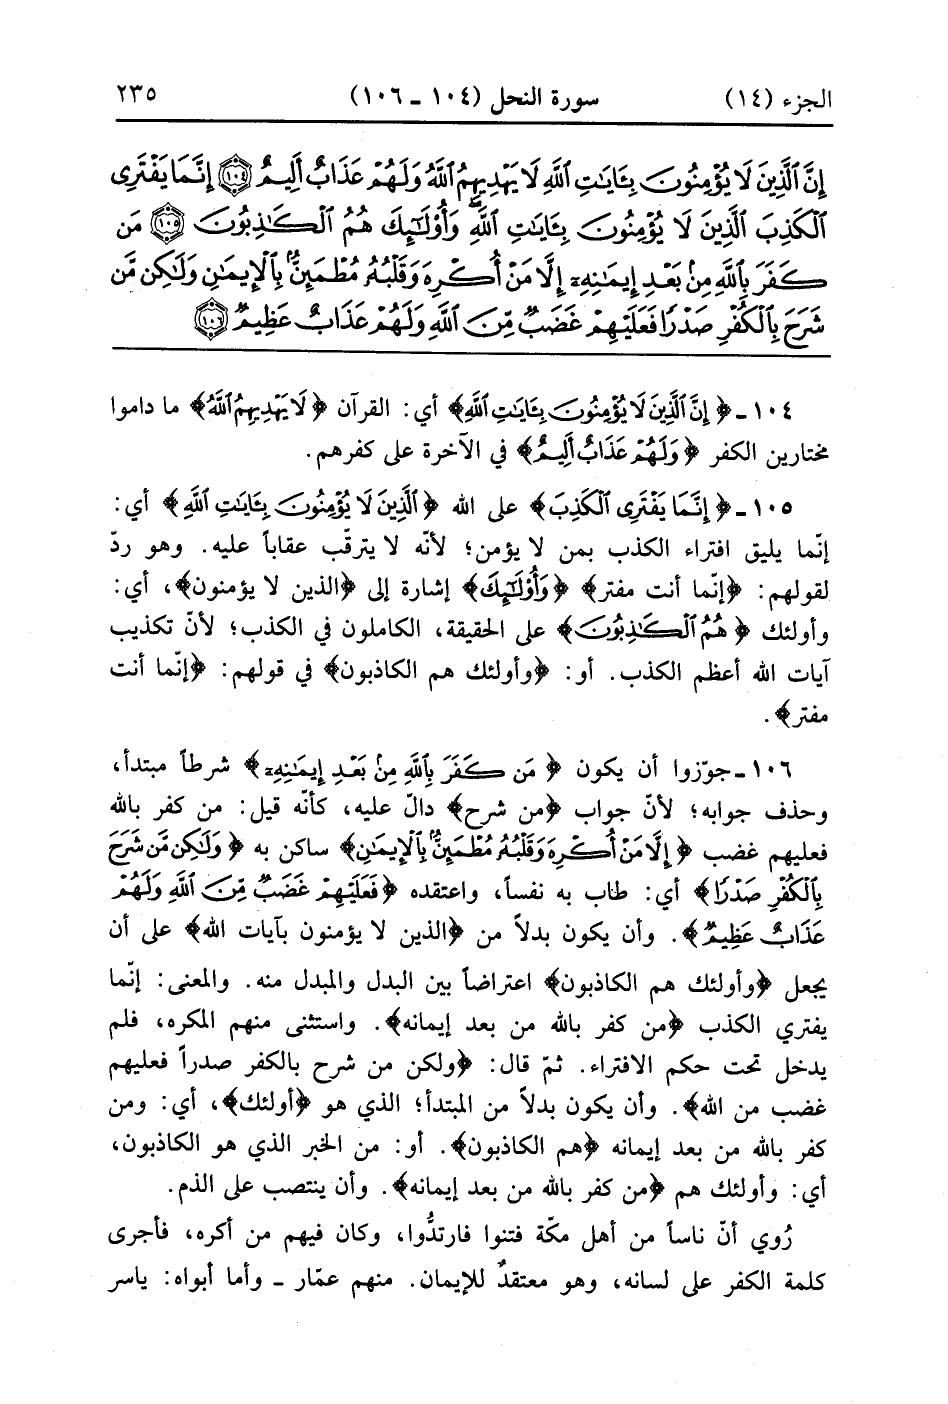 الجزء (١٤) سورة النحل (١٠٤ - ١٠٦) ٢٣٥
إِنَّ ٱلَّذِينَ لَا يُؤْمِنُونَ بِـَٔايَٰتِ ٱللَّهِ لَا يَهْدِيهِمُ ٱللَّهُ وَلَهُمْ عَذَابٌ أَلِيمٌ ١٠٤ إِنَّمَا يَفْتَرِى
ٱلْكَذِبَ ٱلَّذِينَ لَا يُؤْمِنُونَ بِـَٔايَٰتِ ٱللَّهِ ۖ وَأُو۟لَٰٓئِكَ هُمُ ٱلْكَٰذِبُونَ ١٠٥ مَن
كَفَرَ بِٱللَّهِ مِنۢ بَعْدِ إِيمَٰنِهِۦٓ إِلَّا مَنْ أُكْرِهَ وَقَلْبُهُۥ مُطْمَئِنٌّۢ بِٱلْإِيمَٰنِ وَلَٰكِن مَّن
شَرَحَ بِٱلْكُفْرِ صَدْرًا فَعَلَيْهِمْ غَضَبٌ مِّنَ ٱللَّهِ وَلَهُمْ عَذَابٌ عَظِيمٌ ١٠٦
١٠٤ - ﴿إِنَّ ٱلَّذِينَ لَا يُؤْمِنُونَ بِـَٔايَٰتِ ٱللَّهِ﴾ أي: القرآن ﴿لَا يَهْدِيهِمُ ٱللَّهُ﴾ ما داموا
مختارين الكفر ﴿وَلَهُمْ عَذَابٌ أَلِيمٌ﴾ في الآخرة على كفرهم.
١٠٥ - ﴿إِنَّمَا يَفْتَرِى ٱلْكَذِبَ﴾ على الله ﴿ٱلَّذِينَ لَا يُؤْمِنُونَ بِـَٔايَٰتِ ٱللَّهِ﴾ أي:
إنّما يليق افتراء الكذب بمن لا يؤمن؛ لأنّه لا يترقّب عقاباً عليه. وهو ردّ
لقولهم: ﴿إنّما أنت مفتر﴾ ﴿وَأُو۟لَٰٓئِكَ﴾ إشارة إلى ﴿الذين لا يؤمنون﴾، أي:
وأولئك ﴿هُمُ ٱلْكَٰذِبُونَ﴾ على الحقيقة، الكاملون في الكذب؛ لأنّ تكذيب
آيات الله أعظم الكذب. أو: ﴿وأولئك هم الكاذبون﴾ في قولهم: ﴿إنّما أنت
مفتر﴾.
١٠٦ - جوّزوا أن يكون ﴿مَن كَفَرَ بِٱللَّهِ مِنۢ بَعْدِ إِيمَٰنِهِۦٓ﴾ شرطاً مبتدأ،
وحذف جوابه؛ لأنّ جواب ﴿من شرح﴾ دالّ عليه، كأنّه قيل: من كفر بالله
فعليهم غضب ﴿إِلَّا مَنْ أُكْرِهَ وَقَلْبُهُۥ مُطْمَئِنٌّۢ بِٱلْإِيمَٰنِ﴾ ساكن به ﴿وَلَٰكِن مَّن شَرَحَ
بِٱلْكُفْرِ صَدْرًا﴾ أي: طاب به نفساً، واعتقده ﴿فَعَلَيْهِمْ غَضَبٌ مِّنَ ٱللَّهِ وَلَهُمْ
عَذَابٌ عَظِيمٌ﴾. وأن يكون بدلاً من ﴿الذين لا يؤمنون بآيات الله﴾ على أن
يجعل ﴿وأولئك هم الكاذبون﴾ اعتراضاً بين البدل والمبدل منه. والمعنى: إنّما
يفتري الكذب ﴿من كفر بالله من بعد إيمانه﴾. واستثنى منهم المكره، فلم
يدخل تحت حكم الافتراء. ثمّ قال: ﴿ولكن من شرح بالكفر صدراً فعليهم
غضب من الله﴾. وأن يكون بدلاً من المبتدأ؛ الذي هو ﴿أولئك﴾، أي: ومن
كفر بالله من بعد إيمانه ﴿هم الكاذبون﴾. أو: من الخبر الذي هو الكاذبون،
أي: وأولئك هم ﴿من كفر بالله من بعد إيمانه﴾. وأن ينتصب على الذم.
رُوي أنّ ناساً من أهل مكّة فتنوا فارتدُّوا، وكان فيهم من أكره، فأجرى
كلمة الكفر على لسانه، وهو معتقدٌ للإيمان. منهم عمّار - وأما أبواه: ياسر